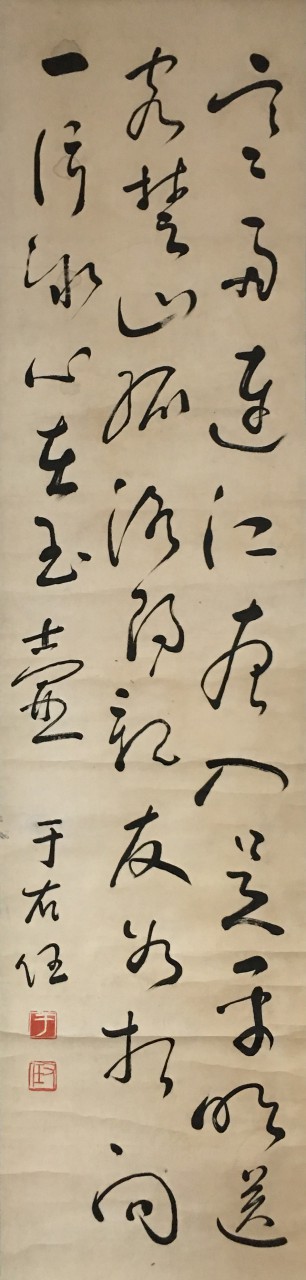 寒雨連江夜入吳平明送
客楚山孤洛陽親友如相問
一片冰心在玉壺
于右任